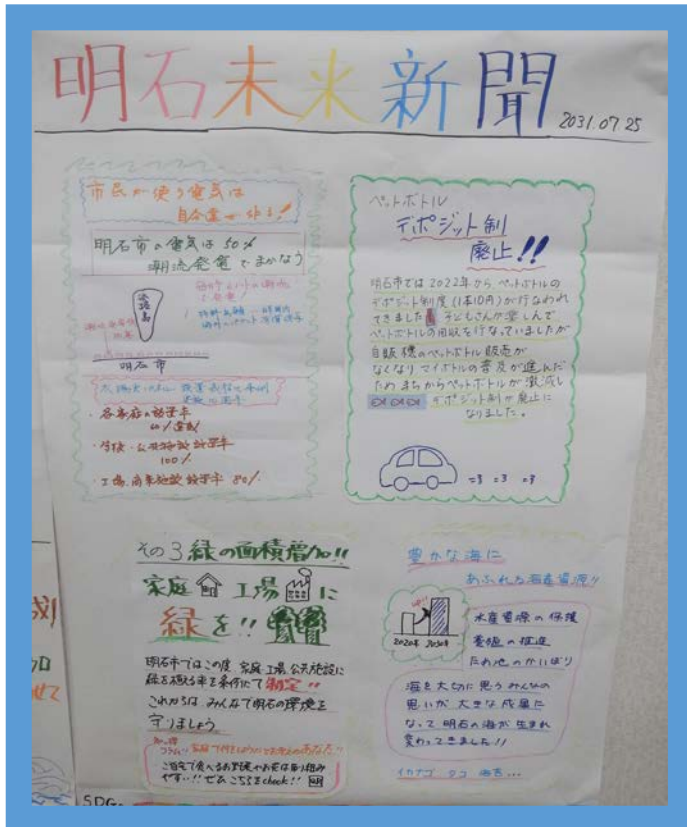 明石未来新聞
2031.07.25
市民が使う電気は
自分達で作る!
明石市の電気は50%
潮流発電でまかなう
淡路島
明石市
・各家庭の設置率
60%達成
・学校・公共施設設置率
100%
・工場、商業施設設置率 80%
ペットボトル
デポジット制
廃止!!
明石市では2022年から、ペットボトルの
デポジット制度(1本10円)が行なわれ
てきました 子どもさんが楽しんで
ペットボトルの回収を行なっていましたが
自販機のペットボトル販売が
なくなりマイボトルの普及が進んだ
ためまちからペットボトルが激減し
デポジット制が廃止に
なりました。
その3 緑の面積増加!!
家庭 工場 に
緑を!!
明石市ではこの度 家庭 工場 公共施設に
緑を植える率を条例にて制定!!
これからは みんなで明石の環境を
守りましょう
ご自宅で食べるお野菜やお花は取り組み
やすい!! ぜひこちらをcheck!!
豊かな海に
あふれる海産資源!!
UP!!
2020年 2030年
水産資源の保護
養殖の推進
ため池のかいぼり
海を大切に思うみんなの
思いが大きな成果に
なって明石の海が生まれ
変わってきました!!
イカナゴ タコ 海苔...
SDG